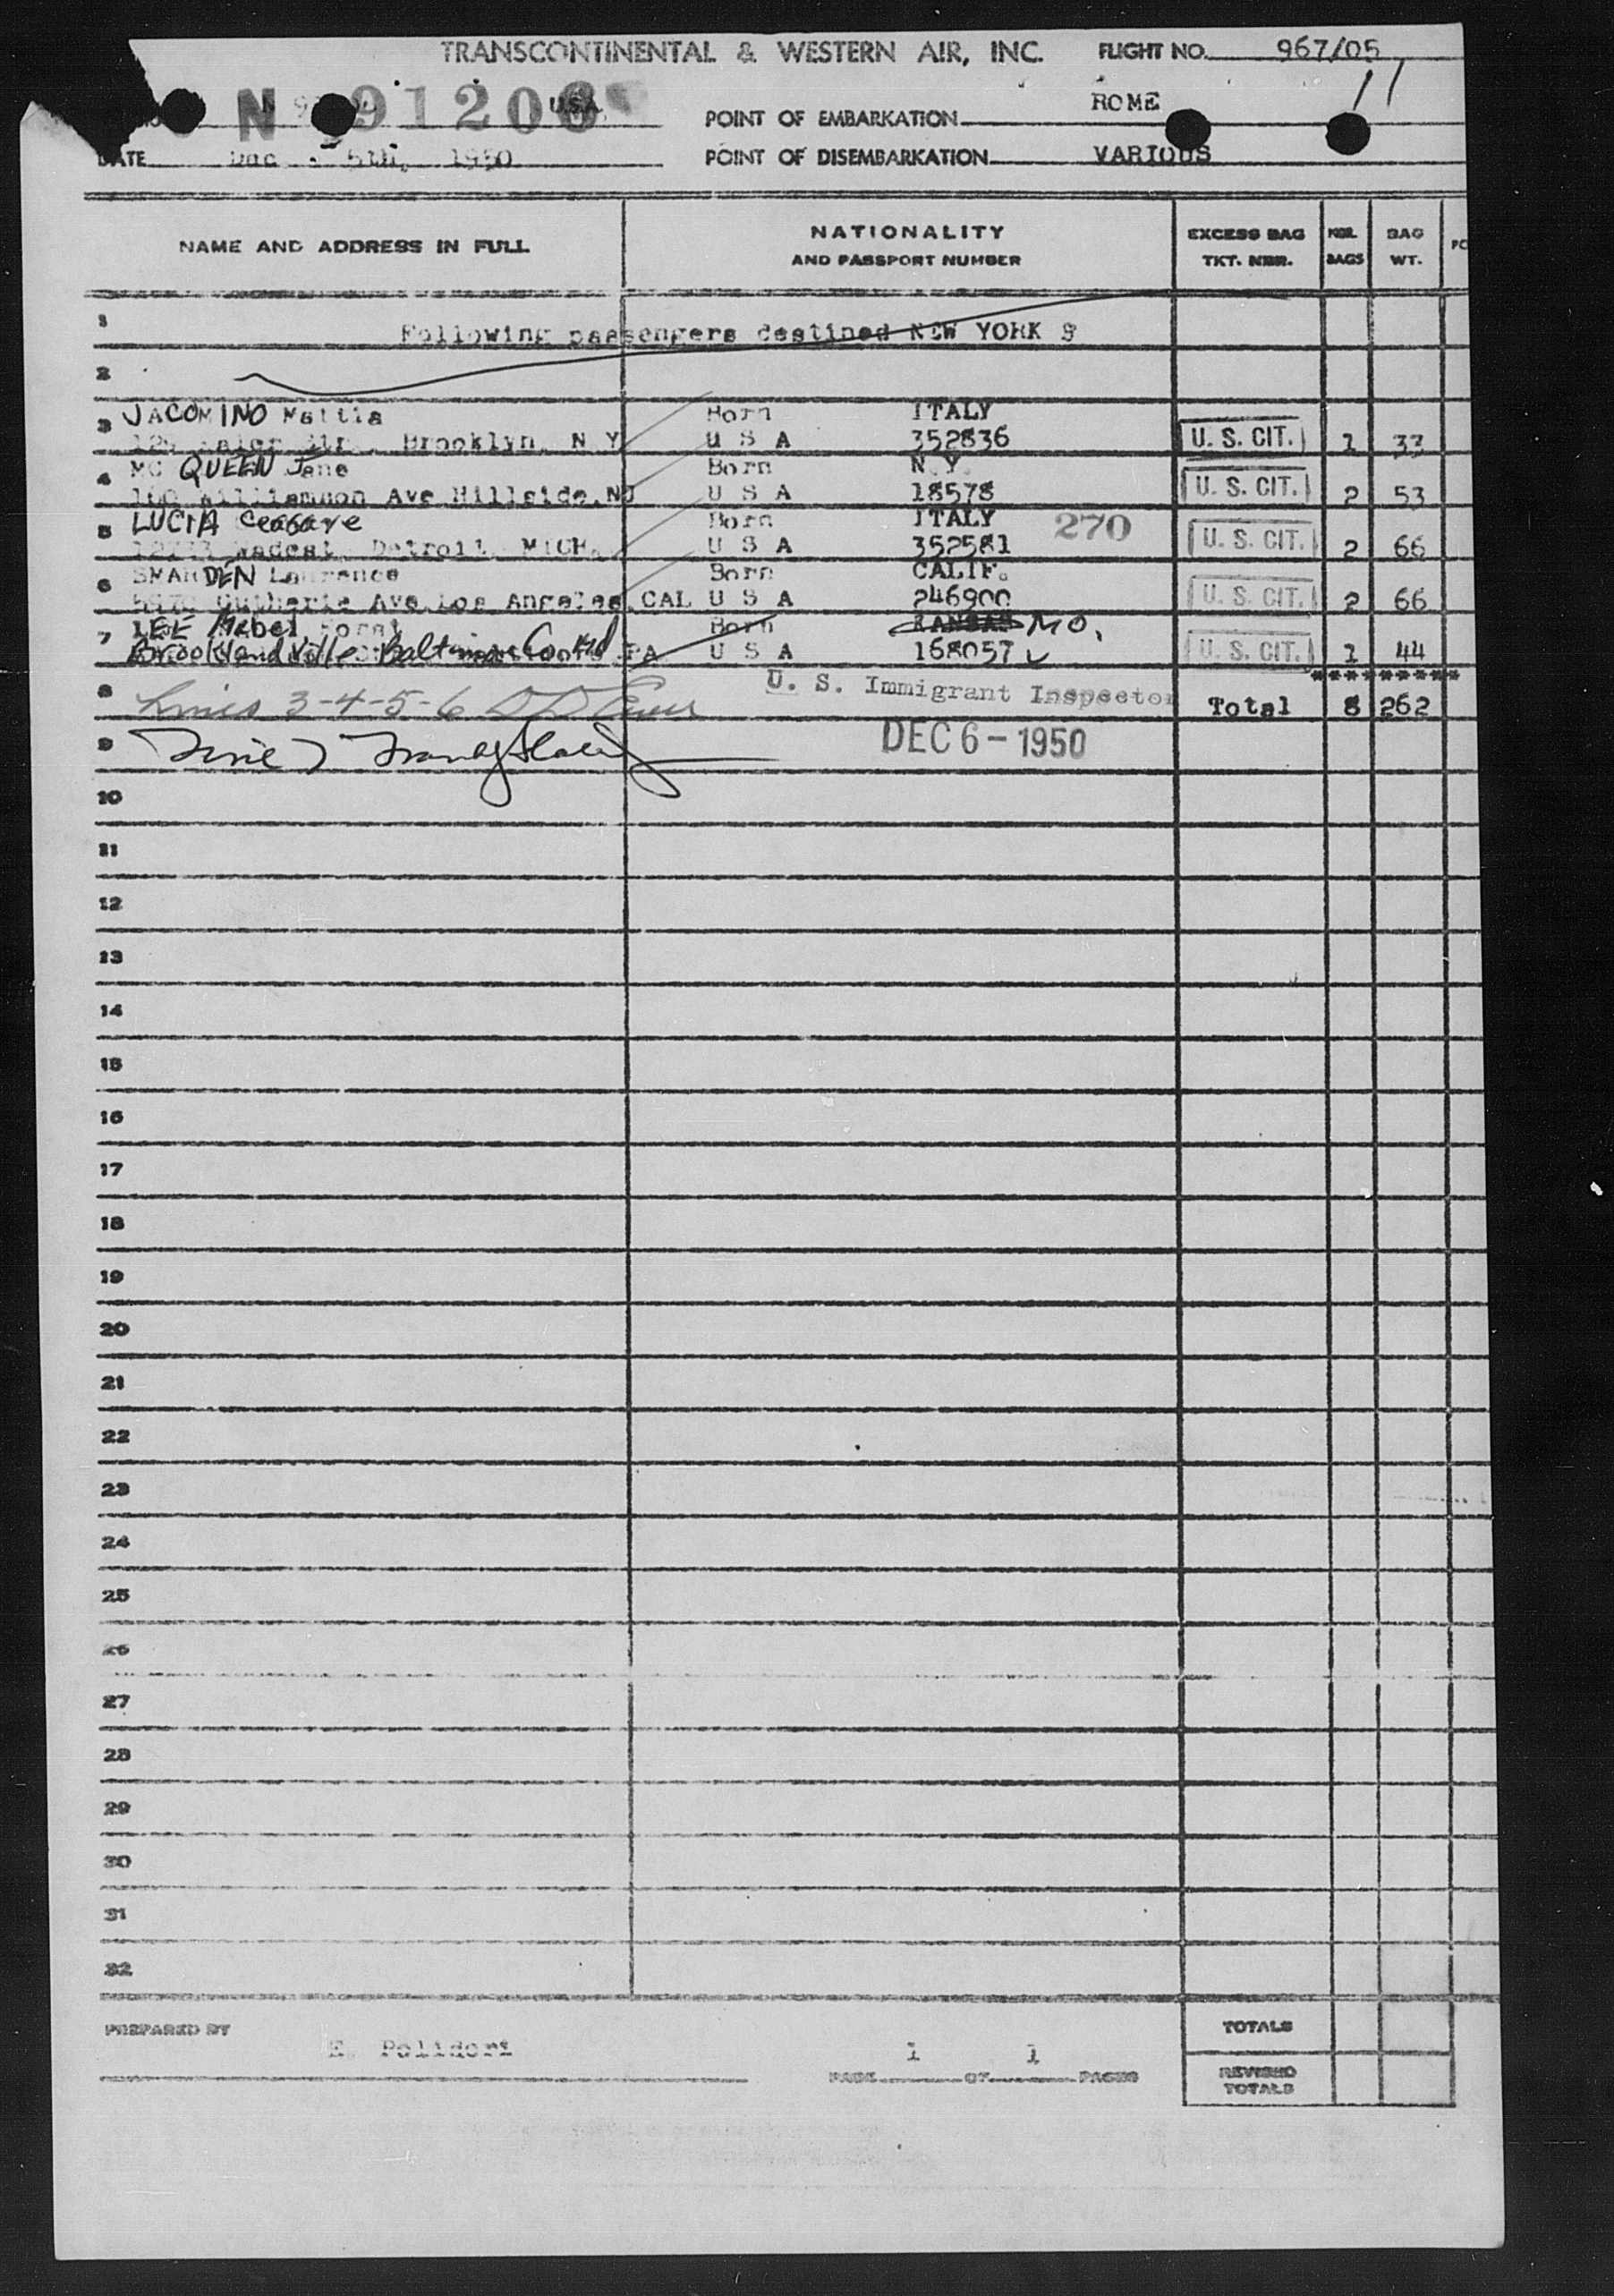 TRANSCONTINENTAL & WESTERN AIR, INC. FLIGHT NO. 967/05
11
N 91206 USA
POINT OF EMBARKATION ROME
DATE Dec. 5th, 1950 POINT OF DISEMBARKATION VARIOUS
NAME AND ADDRESS IN FULL NATIONALITY AND PASSPORT NUMBER EXCESS BAG TKT. NBR. NBR. BAGS BAG WT. PC
1 Following passengers destined NEW YORK
2
3 JACOMINO Mattia Born ITALY
Brooklyn, N Y U S A 352836 U. S. CIT. 1 33
4 MC QUEEN Jane Born N.Y.
Williamson Ave Hillside, NJ U S A 18578 U. S. CIT. 2 53
5 LUCIA Cesare Born ITALY 270
Detroit MICH. U S A 352581 U. S. CIT. 2 66
6 SMARDEN Lawrence Born CALIF.
Ave. Los Angeles, CAL U S A 246900 U. S. CIT. 2 66
7 LEE Mabel Born KANSAS MO.
Brooklandville Baltimore Co Md PA U S A 168057 U. S. CIT. 1 44
**********
8 Lines 3-4-5-6 U. S. Immigrant Inspector Total 8 262
9 Line 7 DEC 6 - 1950
10
11
12
13
14
15
16
17
18
19
20
21
22
23
24
25
26
27
28
29
30
31
32
PREPARED BY E. Polidori PAGE 1 OF 1 PAGES
TOTALS
REVISED TOTALS